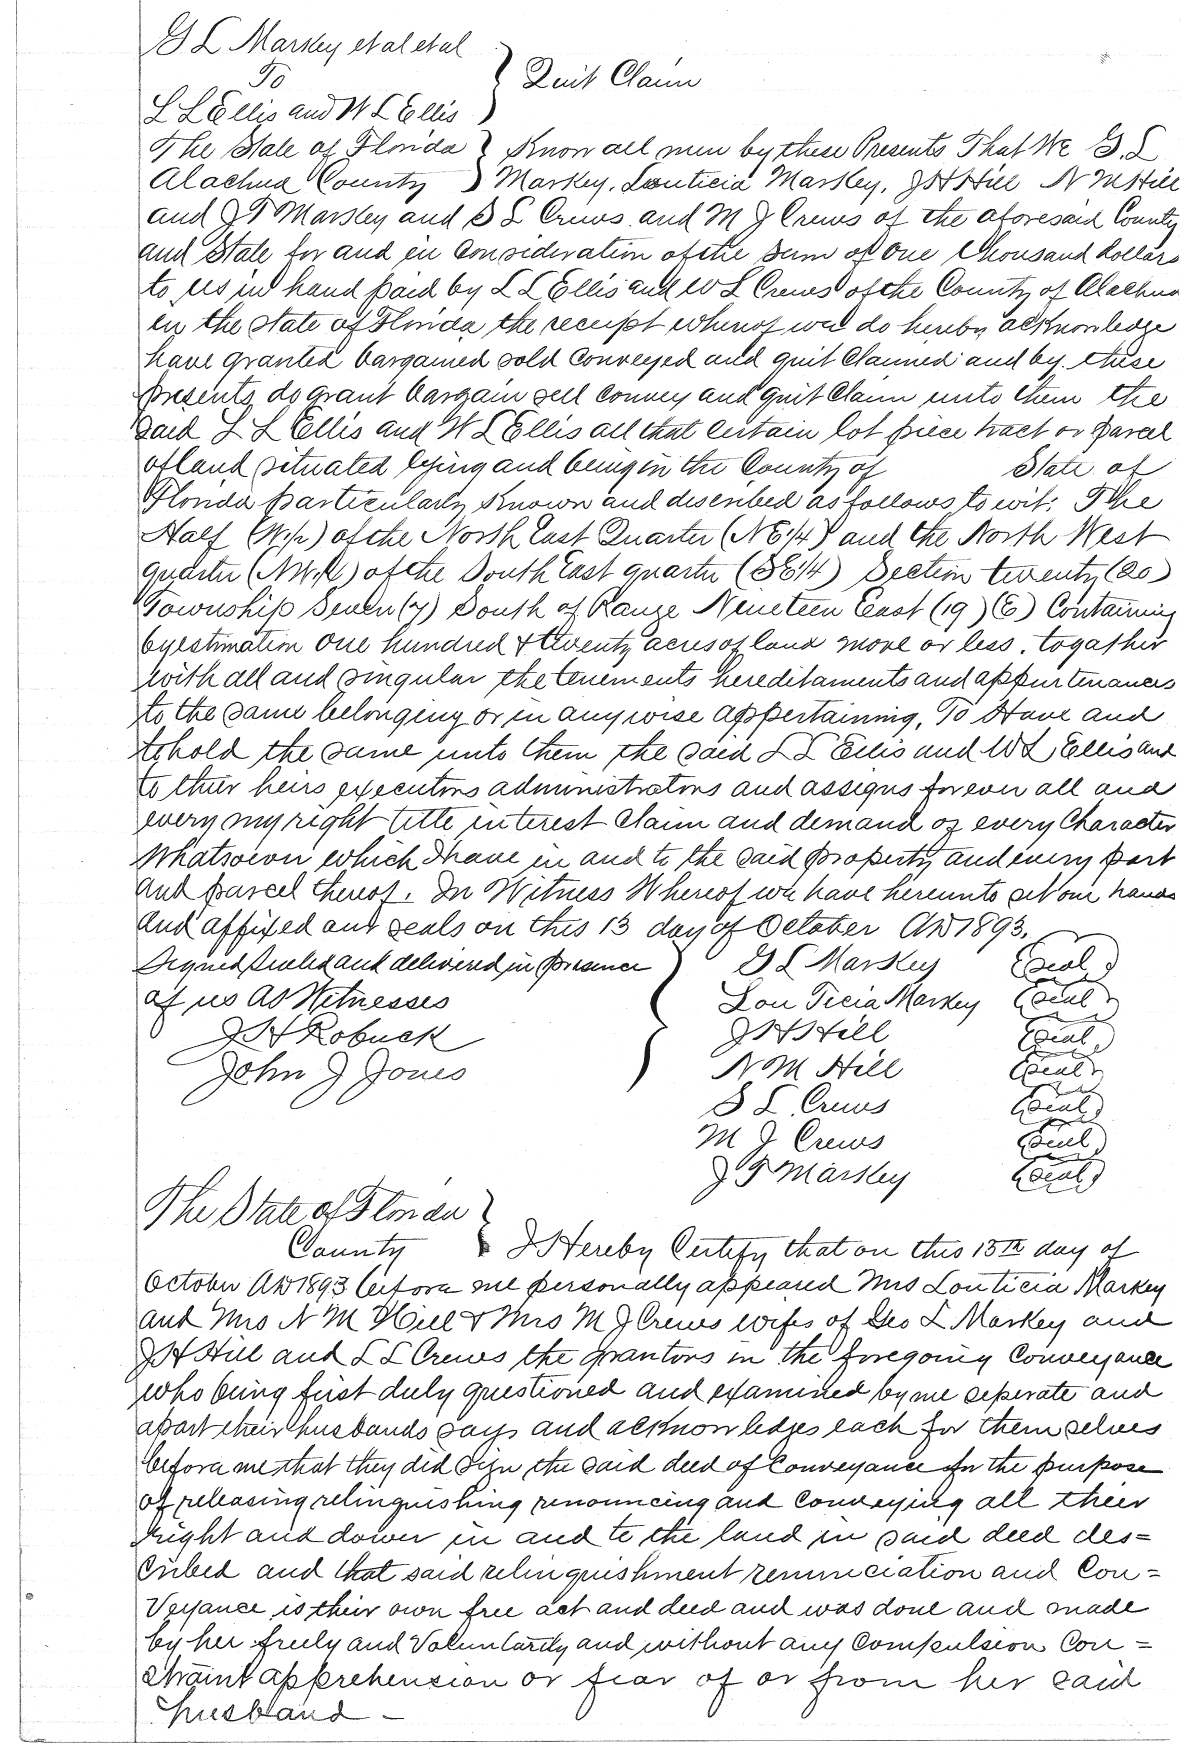 G L Markey et al et al
To } Quit Claim
L L Ellis and W L Ellis
The State of Florida } Know all men by these Presents That We G. L
Alachua County } Markey, Louticia Markey, J H Hill N M Hill
and J T Markey and S L Crews and M J Crews of the aforesaid County
and State for and in consideration of the sum of One thousand dollars
to us in hand paid by L L Ellis and W L Crews of the County of Alachua
in the state of Florida the receipt whereof we do hereby acknowledge
have granted bargained sold conveyed and quit claimed and by these
presents do grant bargain sell convey and quit Claim unto them the
said L L Ellis and W L Ellis all that certain lot piece tract or parcel
of land situated lying and being in the County of State of
Florida particularly known and discribed as follows, to wit: The
Half (W½) of the North East Quarter (NE¼) and the North West
quarter (NW¼) of the South East quarter (SE¼) Section twenty (20)
Township Seven (7) South of Range Nineteen East (19) (E) Containing
by estimation one hundred & twenty acres of land more or less. togather
with all and singular the tenements hereditaments and appurtenances
to the same belonging or in any wise appertaining, To Have and
to hold the same unto them the said L L Ellis and W L Ellis and
to thier heirs executors administrators and assigns forever all and
every my right title interest claim and demand of every Character
Whatsoever which I have in and to the said property and every part
and parcel thereof. In Witness Whereof we have hereunto set our hands
and affixed our seals on this 13 day of October AD 1893.
Signed Sealed and delivered in presence } G L Markey (Seal)
of us As Witnesses Lou Ticia Markey (Seal)
J H Robuck J H Hill (Seal)
John J Jones N M Hill (Seal)
S L Crews (Seal)
M J Crews (Seal)
J T Markey (Seal)
The State of Florida }
County } I Hereby Certify that on this 13th day of
October AD 1893 before me personally appeared Mrs Louticia Markey
and Mrs N M Hill & Mrs M J Crews wifes of Geo L Markey and
J H Hill and L L Crews the grantors in the foregoing Conveyance
who being first duly questioned and examined by me seperate and
apart their husbands says and acknowledges each for them selves
before me that they did sign the said deed of Conveyance for the purpose
of releasing relinquishing renouncing and conveying all thier
right and dower in and to the land in said deed des=
cribed and that said relinquishment renunciation and Con=
veyance is their own free act and deed and was done and made
by her freely and Voluntarily and without any Compulsion Con=
straint apprehension or fear of or from her said
husband –